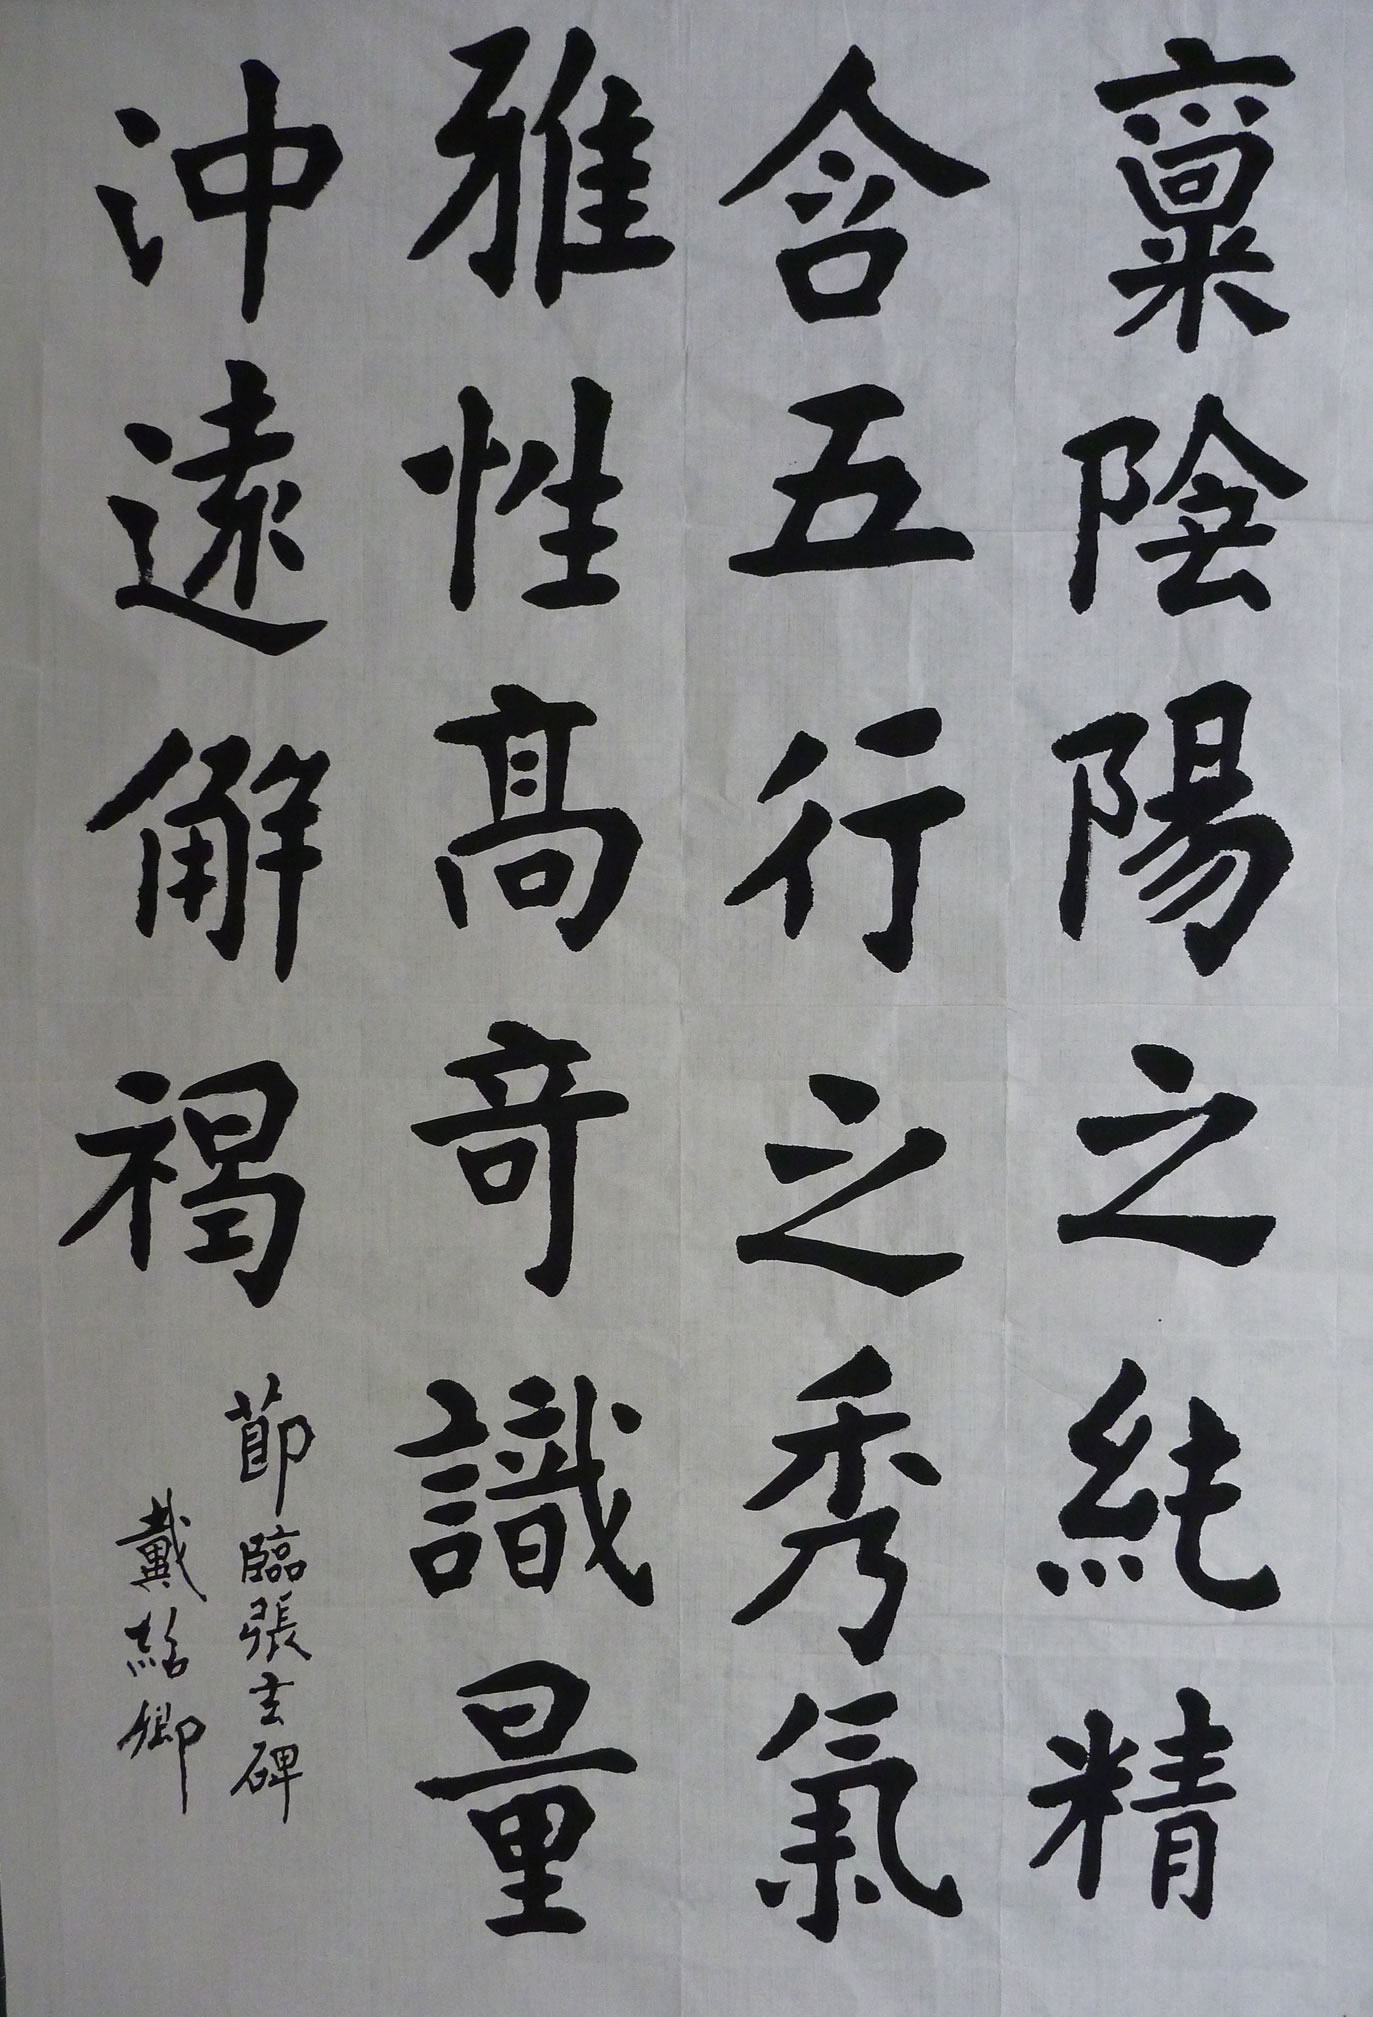 稟陰陽之純精
含五行之秀氣
雅性高奇識量
沖遠解褐
節臨張玄碑
戴紹卿